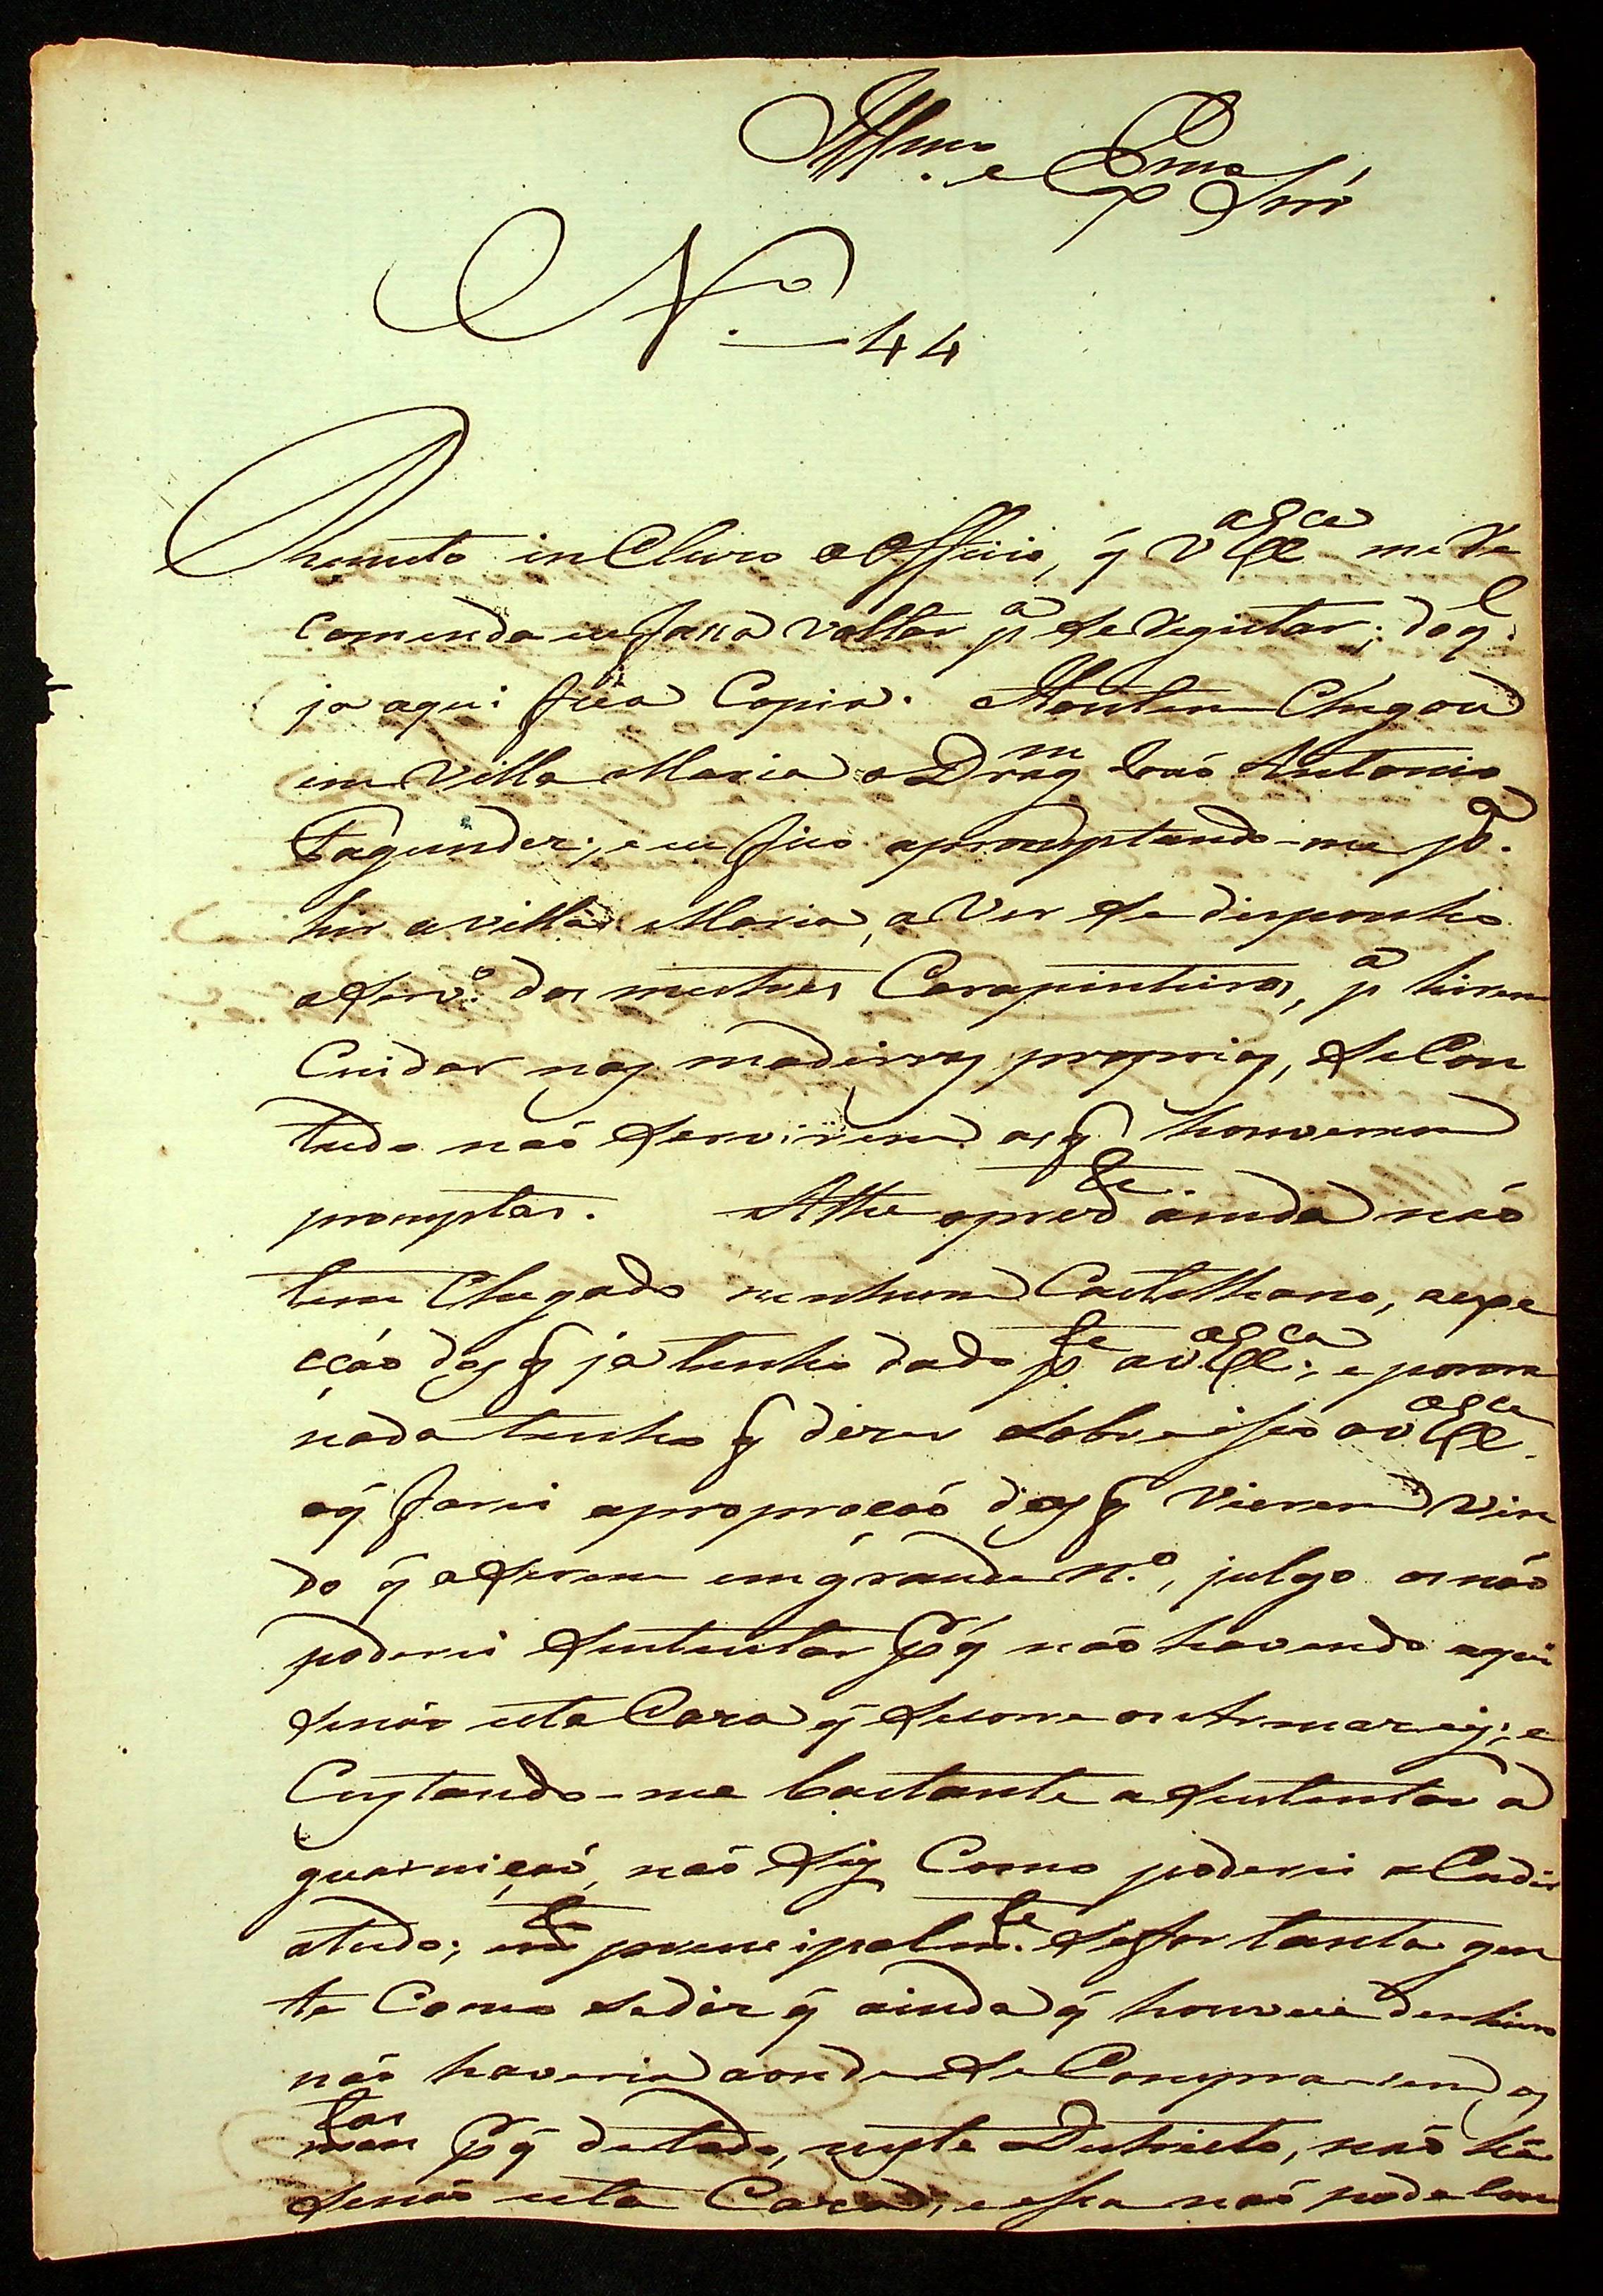 Illmo. e Exmo Snr'
No. 44
Remeto incluzo o Officio, q̃ V.ª Exca me Re
comenda eu faça voltar pª se Registar; do ql.
ja aqui fica Copia. Hontem Chegou
em Villa Maria o Dragm João Antonio
Fagundes; e eu fico apromptando-me pª.
hir a villa Maria, a Ver se disponho
o Servº. dos mestres Carapinteiros, pª hirem
Cuidar nas madeiras proprias, se Con
tudo não servirem as q̃ houverem
promptas. Athe o prezte. ainda não
tem Chegado nenhum Castelhano, a expe
cção dos q̃ ja tenho dado pte a V.ª Exca; e por ora
nada tenho q̃ dizer sobre isso a V.ª Exca.
o q̃ farei a proporção dos q̃ vierem vin
do q̃ a serem em grande N.º, julgo os não
poderei sustentar p̃q̃ não havendo aqui
senão esta Caza q̃ Secorre os Armazeis; e
Custando-me bastante a sustentar a
guarnição, não Sei Como poderei aCudir
a tudo; principalmte. se for tanta gen
te Como se diz q̃ ainda q̃ houvece denheiro
não haveria aonde se Comprarem os
mantos p̃q̃ de todo, neste Destricto, não há
senão esta Caza, e essa não pode Con